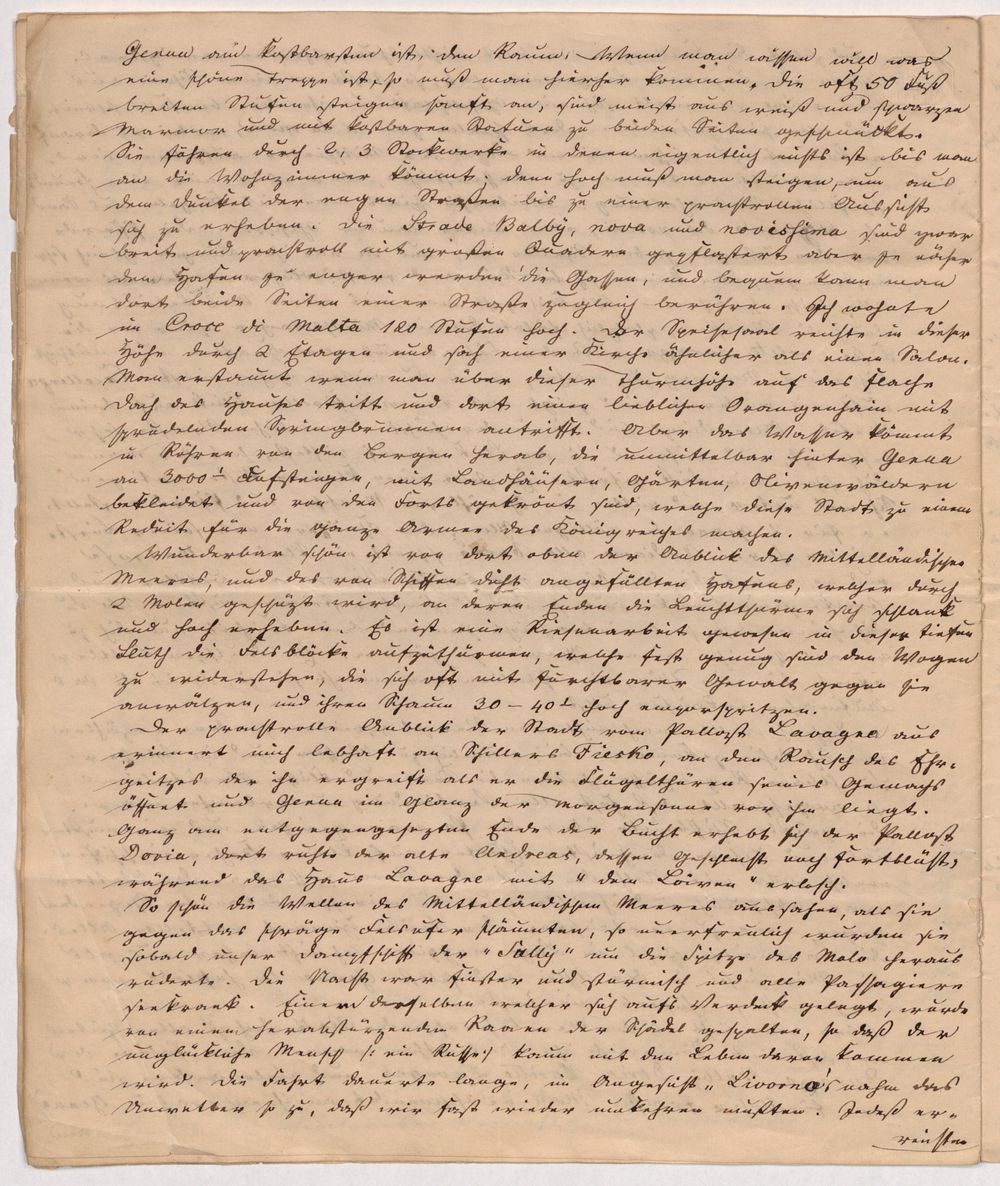 Genua am kostbarsten ist, den Raum. Wenn man wissen will was
eine schöne Treppe ist, so muß man hierher kommen. Die oft 50 Fuß
breiten Stufen steigen sanft an, sind meist aus weiß und schwarzen
Marmor und mit kostbaren Statuen zu beiden Seiten geschmückt.
Sie führen durch 2, 3 Stockwerke in denen eigentlich nichts ist bis man
an die Wohnzimmer kömmt. denn hoch muß man steigen, um aus
dem Dunkel der engen Straßen bis zu einer prachtvollen Aussicht
sich zu erheben. Die Strade Balby, nova und novissima sind zwar
breit und prachtvoll mit großen Quadern gepflastert aber je näher
dem Hafen je enger werden die Gassen, und bequem kann man
dort beide Seiten einer Straße zugleich berühren. Ich wohnte
im Croce di Malta 180 Stufen hoch. Der Speisesaal reichte in dieser
Höhe durch 2 Etagen und sah einer Kirche ähnlicher als einen Salon.
Man erstaunt wenn man über dieser Thurmhöhe auf das flache
Dach des Hauses tritt und dort einen lieblichen Orangenhain mit
sprudelnden Springbrunnen antrifft. Aber das Wasser kömmt
in Röhren von den Bergen herab, die unmittelbar hinter Genua
an 3000' aufsteigen, mit Landhäusern, Gärten, Olivenwäldern
bekleidet und von den Forts gekrönt sind, welche diese Stadt zu einem
Reduit für die ganze Armee des Königreiches machen.
Wunderbar schön ist von dort oben der Anblick des Mittelländischen
Meeres, und des von Schiffen dicht angefüllten Hafens, welcher durch
2 Molen geschüzt wird, an deren Enden die Leuchtthürme sich schlank
und hoch erheben. Es ist eine Riesenarbeit gewesen in dieser tiefen
Fluth die Felsblöcke aufzuthürmen, welche fest genug sind den Wogen
zu widerstehen, die sich oft mit furchtbarer Gewalt gegen sie
anwälzen, und ihren Schaum 30 – 40' hoch emporspritzen.
Der prachtvolle Anblick der Stadt vom Pallast Lavagne aus
erinnert mich lebhaft an Schillers Fiesko, an den Rausch des Ehr-
geitzes der ihn ergreift als er die Flügelthüren seines Gemachs
öffnet und Genua im Glanz der Morgensonne vor ihm liegt.
Ganz am entgegengesezten Ende der Bucht erhebt sich der Pallast
Doria, dort ruhte der alte Andreas, dessen Geschlecht noch fortblüht,
während das Haus Lavagne mit "dem Löwen" erlosch.
So schön die Wellen des Mittelländischen Meeres aussahen, als sie
gegen das schräge Felsufer schäumten, so unerfreulich wurden sie
sobald unser Dampfschiff der "Sully" um die Spitze des Molo heraus
ruderte. Die Nacht war finster und stürmisch und alle Passagiere
seekrank. Einem derselben welcher sich aufs Verdeck gelegt, wurde
von einem herabstürzenden Raaen der Schädel gespalten, so daß der
unglückliche Mensch /: ein Russe :/ kaum mit dem Leben davon kommen
wird. Die Fahrt dauerte lange, im Angesicht Livorno's nahm das
Unwetter so zu, daß wir fast wieder umkehren mußten. Indeß er-
reichten